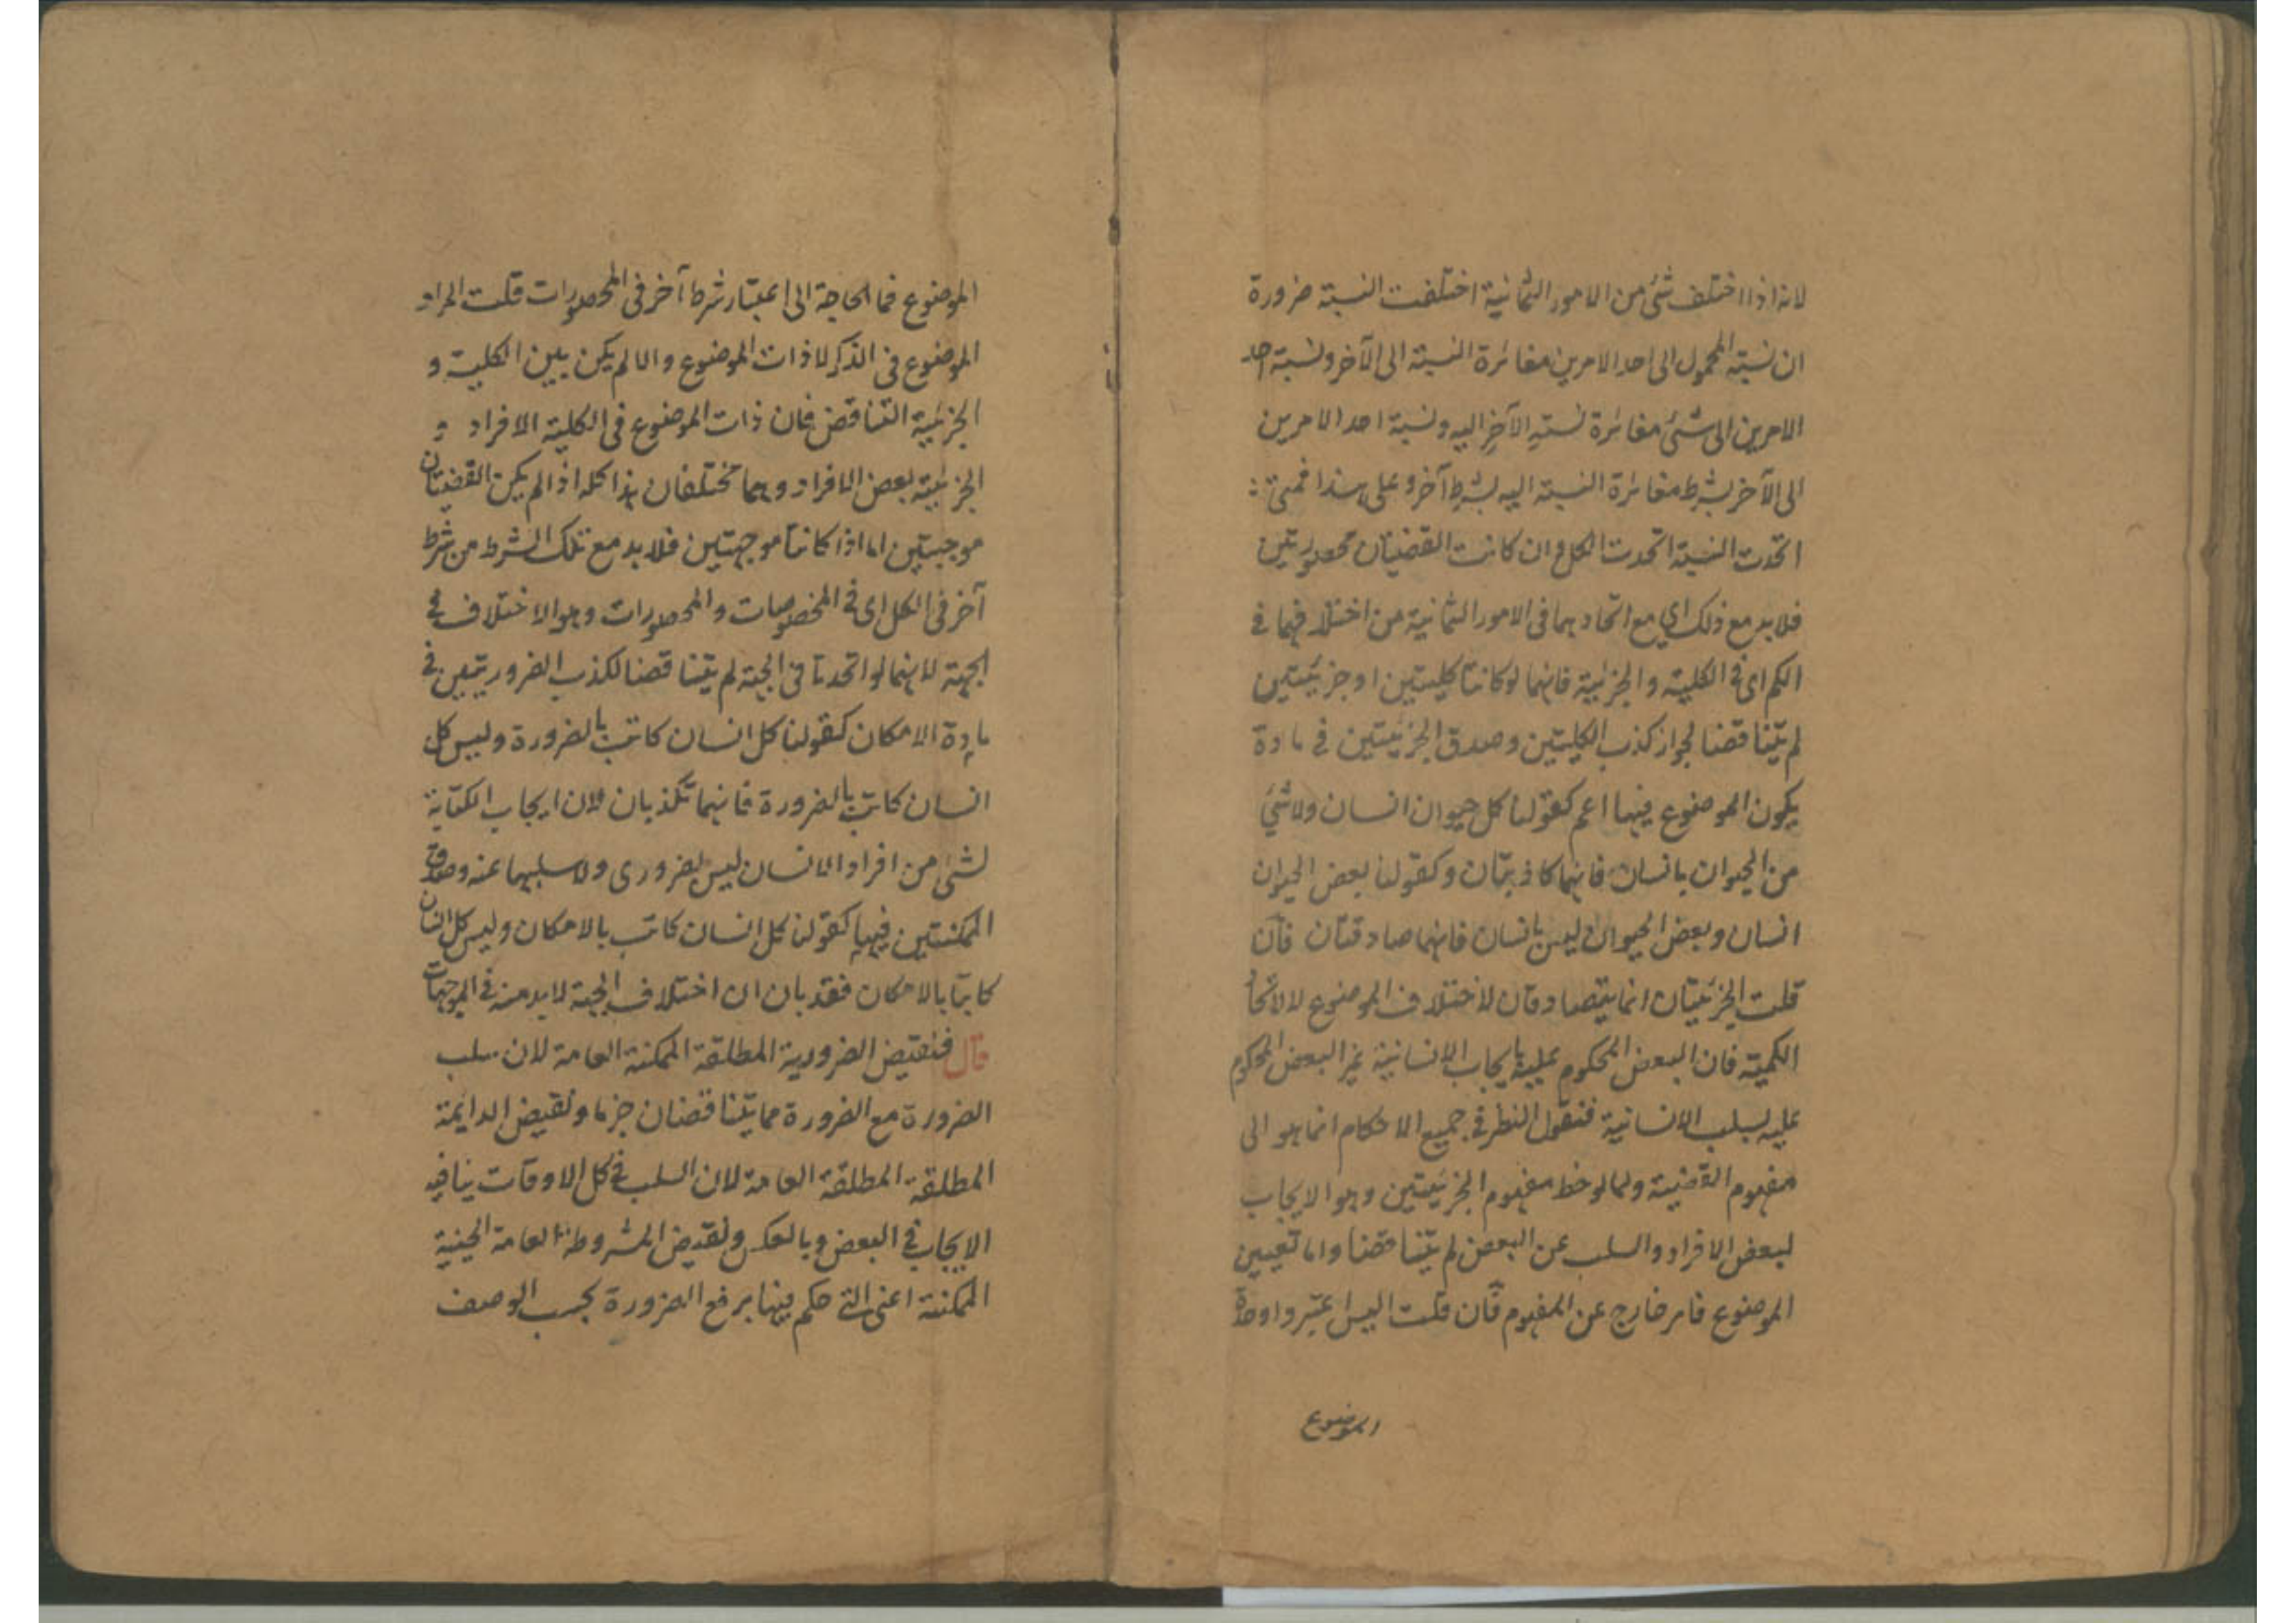 لانه اذا اختلف شئ من الامور الثمانية اختلفت النسبة ضرورة
ان نسبة المحمول الى احد الامرين مغائرة النسبة الى الآخر ونسبة احد
الامرين الى شئ مغائرة لنسبة الآخر اليه ونسبة احد الامرين
الى الآخر بشرط مغائرة النسبة اليه بشرط آخر وعلى هذا فمتى
اتحدت النسبة اتحدت الكل وان كانت القضيتان محصورتين
فلا بد مع ذلك اي مع اتحادهما فى الامور الثمانية من اختلافهما فى
الكم اى فى الكلية والجزئية فانهما لو كانتا كليتين او جزئيتين
لم يتناقضا لجواز كذب الكليتين وصدق الجزئيتين فى مادة
يكون الموضوع فيها اعم كقولنا كل حيوان انسان ولا شئ
من الحيوان بانسان فانهما كاذبتان وكقولنا بعض الحيوان
انسان وبعض الحيوان ليس بانسان فانهما صادقتان فان
قلت الجزئيتان انما يتصادقان لاختلاف الموضوع لا لاتحاد
الكمية فان البعض المحكوم عليه بايجاب الانسانية غير البعض المحكوم
عليه بسلب الانسانية فنقول النظر فى جميع الاحكام انما هو الى
مفهوم القضية ولما لوحظ مفهوم الجزئيتين وهو الايجاب
لبعض الافراد والسلب عن البعض لم يتناقضا واما تعيين
الموضوع فامر خارج عن المفهوم فان قلت اليس اعتبروا وحدة
الموضوع
الموضوع فما الحاجة الى اعتبار شرط آخر فى المحصورات قلت المراد
الموضوع فى الذكر لا ذات الموضوع والا لم يكن بين الكلية و
الجزئية التناقض فان ذات الموضوع فى الكلية الافراد و
الجزئية بعض الافراد وهما مختلفان هذا كله اذا لم يكن القضيتان
موجهتين اما اذا كانتا موجهتين فلا بد مع تلك الشرط من شرط
آخر فى الكل اى فى المخصوصات والمحصورات وهو الاختلاف فى
الجهة لانهما لو اتحدتا فى الجهة لم يتناقضا لكذب الضروريتين فى
مادة الامكان كقولنا كل انسان كاتب بالضرورة وليس كل
انسان كاتب بالضرورة فانهما تكذبان لان ايجاب الكتابة
لشئ من افراد الانسان ليس بضرورى ولا سلبها عنه وصدق
الممكنتين فيها كقولنا كل انسان كاتب بالامكان وليس كل انسان
كاتبا بالامكان فقد بان ان اختلاف الجهة لا بد منه فى الموجهات
قال فنقيض الضرورية المطلقة الممكنة العامة لان سلب
الضرورة مع الضرورة مما يتناقضان جزما ونقيض الدايمة
المطلقة المطلقة العامة لان السلب فى كل الاوقات ينافيه
الايجاب فى البعض وبالعكس ونقيض المشروطة العامة الحينية
الممكنة اعنى التى حكم فيها برفع الضرورة بحسب الوصف